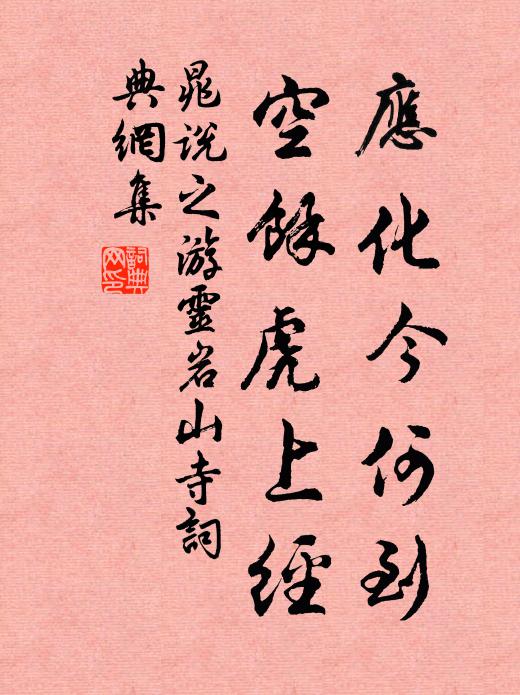 應化今何到
空餘虎上經
晁說之游靈岩山寺詞
典網集
詞典
网印